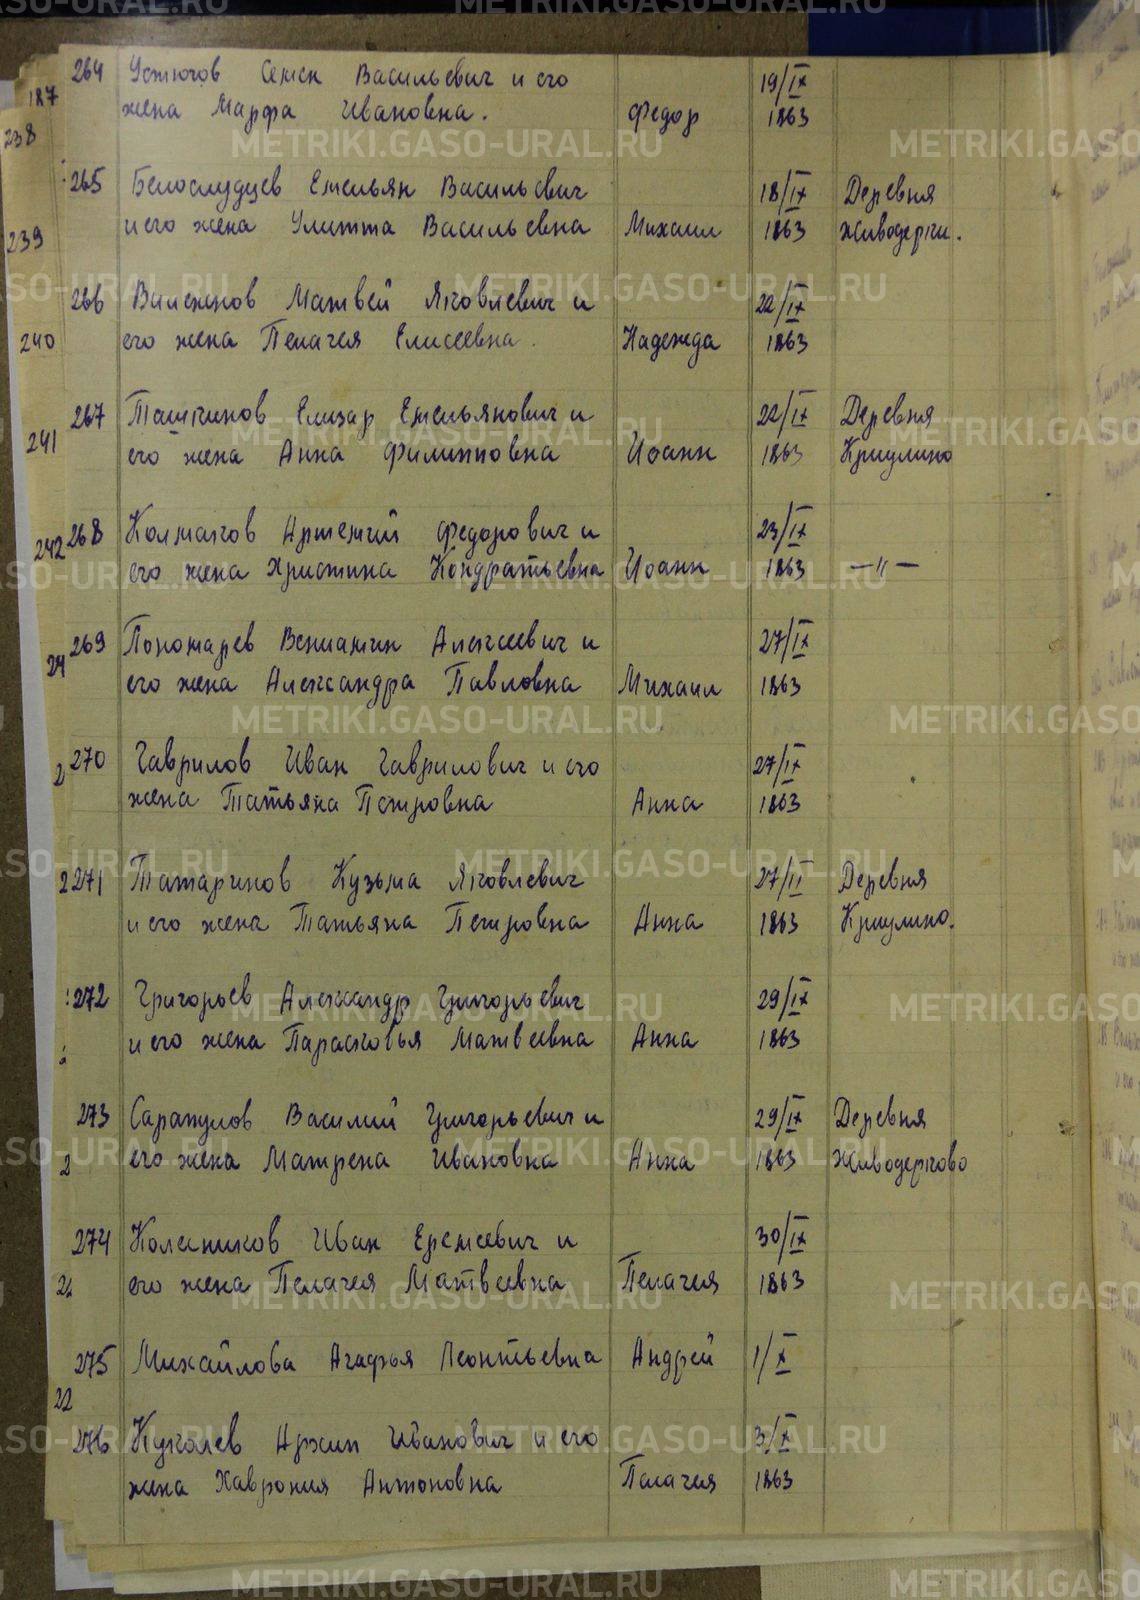 264 Устюгов Семен Васильевич и его 19/IX
187 жена Марфа Ивановна. Федор 1863
238
265 Белослудцев Емельян Васильевич 18/IX Деревня
239 и его жена Улитта Васильевна Михаил 1863 Живодерки.
266 Вилежнов Матвей Яковлевич и 22/IX
240 его жена Пелагея Елисеевна. Надежда 1863
267 Ташкинов Елизар Емельянович и 22/IX Деревня
241 его жена Анна Филипповна Иоанн 1863 Криулино
268 Колмаков Артемий Федорович и 23/IX
242 его жена Христина Кондратьевна Иоанн 1863 —"—
269 Пономарев Вениамин Алексеевич и 27/IX
24 его жена Александра Павловна Михаил 1863
270 Гаврилов Иван Гаврилович и его 27/IX
2 жена Татьяна Петровна Анна 1863
2 271 Татаринов Кузьма Яковлевич 27/II Деревня
и его жена Татьяна Петровна Анна 1863 Криулино.
272 Григорьев Александр Григорьевич 29/IX
2 и его жена Парасковья Матвеевна Анна 1863
273 Сарапулов Василий Григорьевич и 29/IX Деревня
2 его жена Матрена Ивановна Анна 1863 Живодерково
274 Колесников Иван Еремеевич и 30/IX
22 его жена Пелагея Матвеевна Пелагея 1863
275 Михайлова Агафья Леонтьевна Андрей 1/X
22
276 Кукалев Архип Иванович и его 3/X
жена Хаврония Антоновна Палагея 1863
METRIKI.GASO-URAL.RU